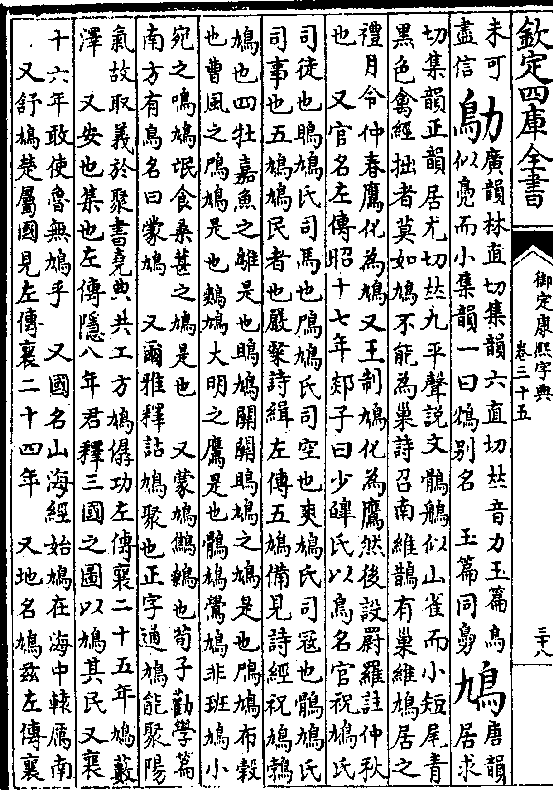 欽定四庫全書
御定康熙字典
卷三十五
三十八
未可
盡信
鳨
廣韻林直切集韻六直切𠀤音力玉篇鳥
似鳧而小集韻一曰鴆別名　玉篇同
鳩
唐韻
居求
切集韻正韻居尤切𠀤九平聲說文鶻鵃似山雀而小短尾青
黑色禽經拙者莫如鳩不能為巢詩召南維鵲有巢維鳩居之
禮月令仲春鷹化為鳩又王制鳩化為鷹然後設罻羅註仲秋
也　又官名左傳昭十七年郯子曰少皥氏以鳥名官祝鳩氏
司徒也鴡鳩氏司馬也鳲鳩氏司空也爽鳩氏司寇也鶻鳩氏
司事也五鳩鳩民者也嚴粲詩緝左傳五鳩備見詩經祝鳩鵓
鳩也四牡嘉魚之鵻是也鴡鳩關關鴡鳩之鳩是也鳲鳩布穀
也曹風之鳲鳩是也鷞鳩大明之鷹是也鶻鳩鷽鳩非班鳩小
宛之鳴鳩氓食桑葚之鳩是也　又蒙鳩鷦鷯也荀子勸學篇
南方有鳥名曰蒙鳩　又爾雅釋詁鳩聚也正字通鳩能聚陽
氣故取義於聚書堯典共工方鳩僝功左傳襄二十五年鳩藪
澤　又安也集也左傳隱八年君釋三國之圖以鳩其民又襄
十六年敢使魯無鳩乎　又國名山海經始鳩在海中轅厲南
又舒鳩楚屬國見左傳襄二十四年　又地名鳩兹左傳襄